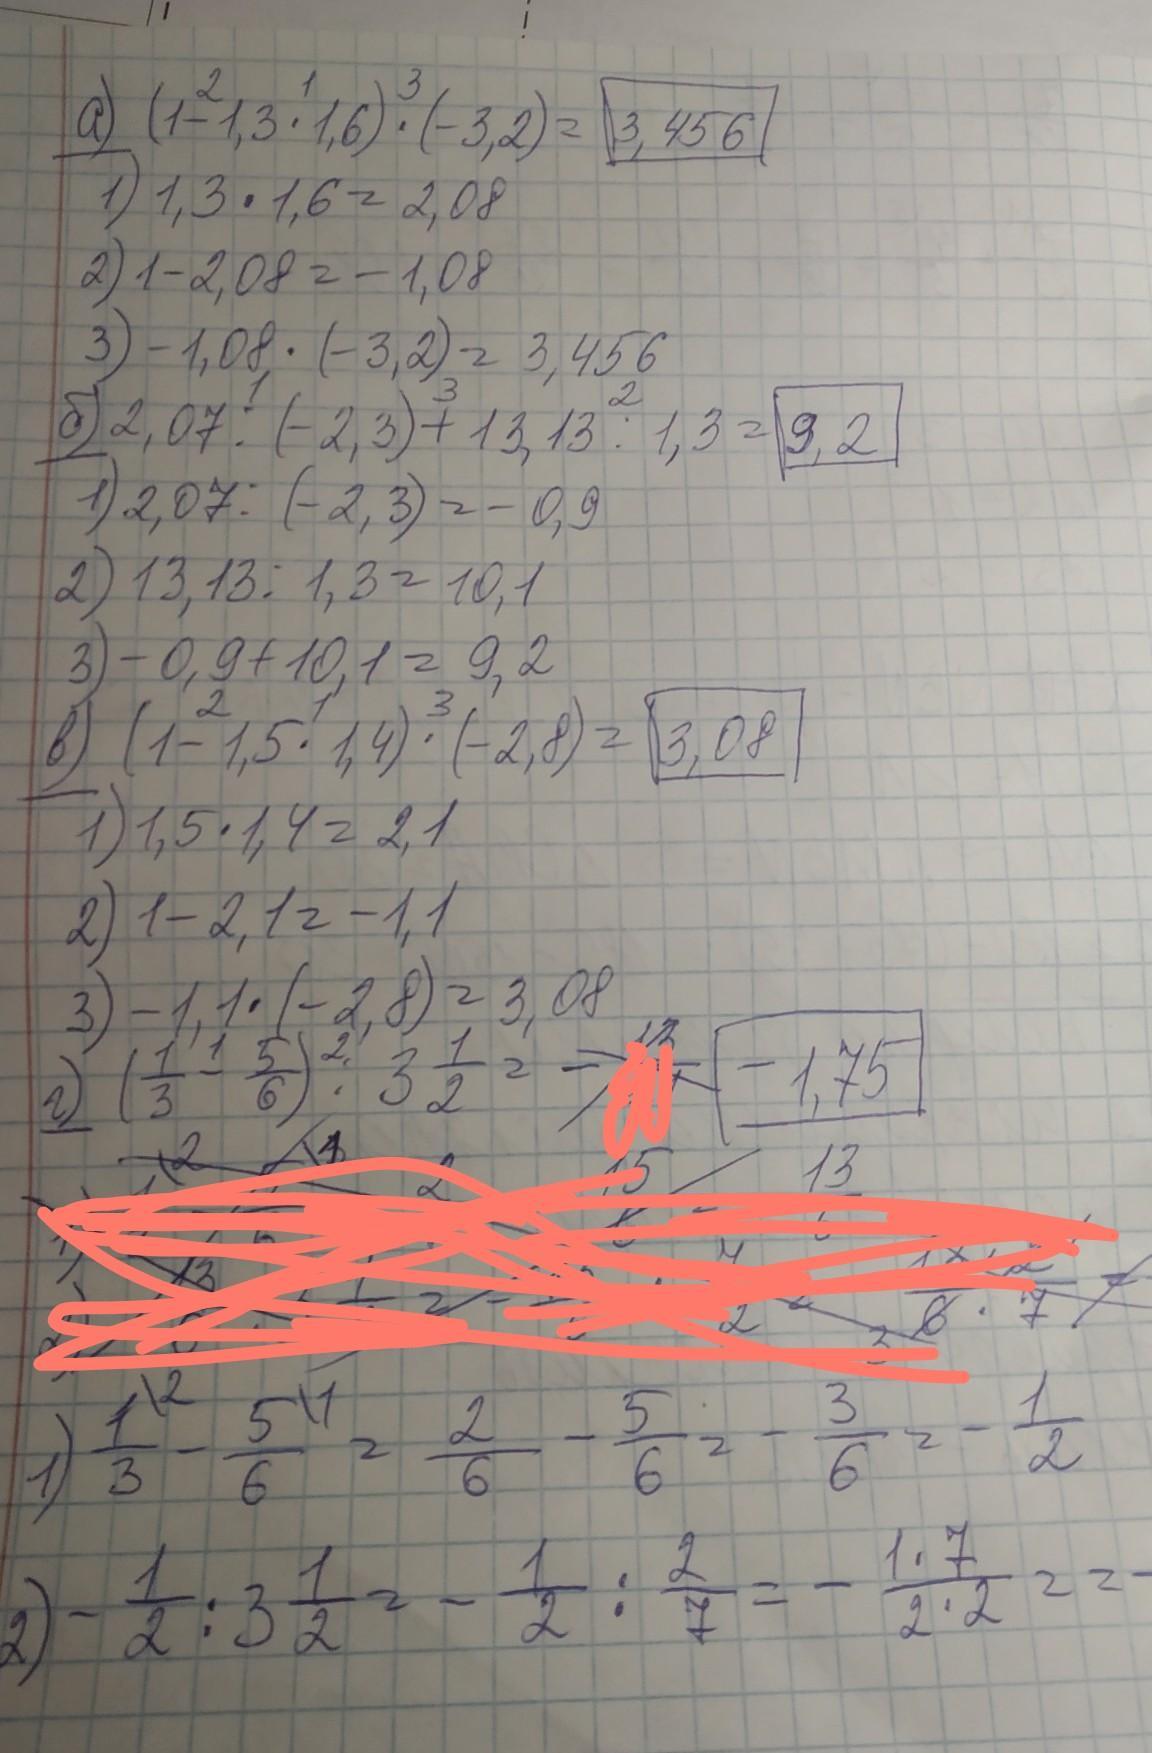 а) (1-1,3·1,6)·(-3,2)=3,456
1) 1,3·1,6=2,08
2) 1-2,08=-1,08
3) -1,08·(-3,2)=3,456
б) 2,07:(-2,3)+13,13:1,3=9,2
1) 2,07:(-2,3)=-0,9
2) 13,13:1,3=10,1
3) -0,9+10,1=9,2
в) (1-1,5·1,4)·(-2,8)=3,08
1) 1,5·1,4=2,1
2) 1-2,1=-1,1
3) -1,1·(-2,8)=3,08
г) (1/3-5/6):3 1/2= -1,75
1) 1/3\2 - 5/6\1 = 2/6 - 5/6 = -3/6 = -1/2
2) -1/2:3 1/2=-1/2:2/7=-1·7/2·2==-